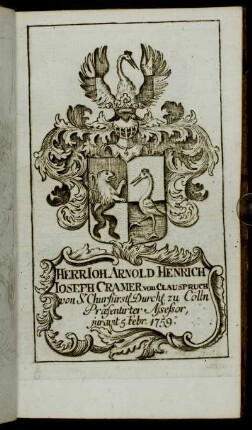 HERR IOH. ARNOLD HENRICH
IOSEPH CRAMER von CLAUSPRUCH
von Sr. Churfürstl. Durchl. zu Cölln
Præsentirter Assessor,
juravit 5. Febr. 1759.